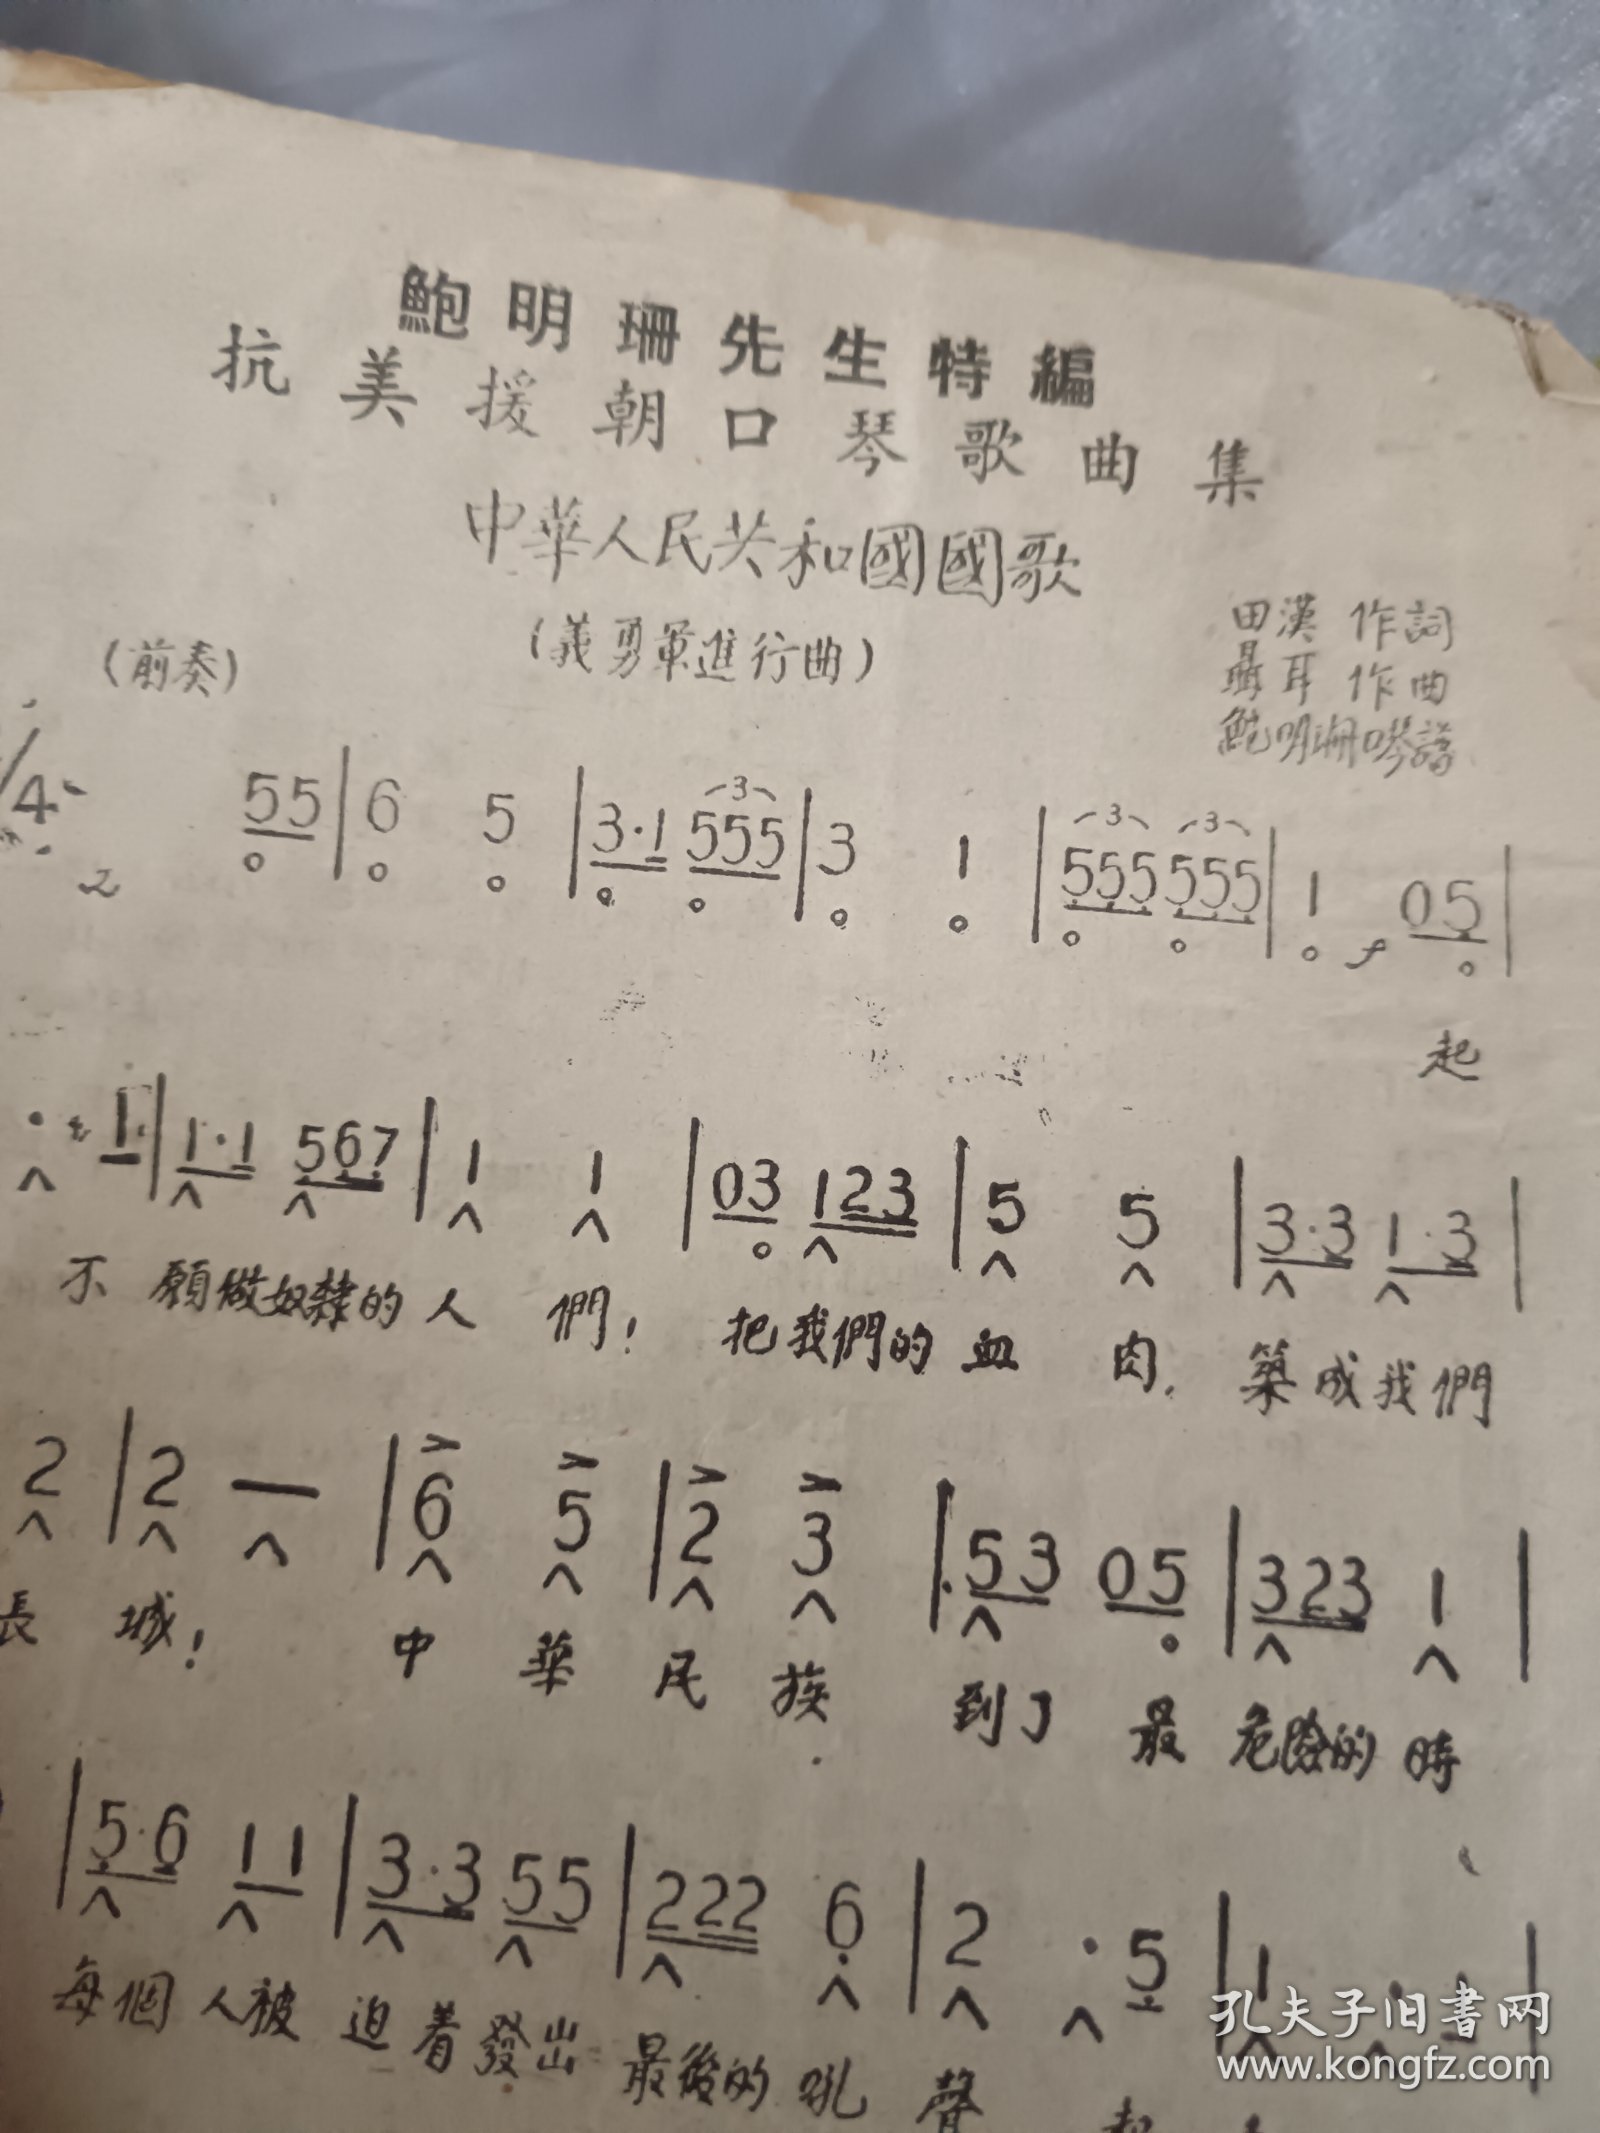 鮑明珊先生特編
抗美援朝口琴歌曲集
中華人民共和國國歌
(前奏)
(義勇軍進行曲)
田漢 作詞
聶耳 作曲
鮑明珊口琴譜
/4
55 | 6 5 | 3·1 555 | 3 1 | 555 555 | 1 f 05 |
起
· 1 | 1·1 567 | 1 1 | 03 123 | 5 5 | 3·3 1·3 |
不願做奴隸的人們! 把我們的血肉, 築成我們
2 | 2 — | 6 5 | 2 3 | 53 05 | 323 1 |
長城! 中華民族 到了最危險的時
| 5·6 11 | 3·3 55 | 222 6 | 2 ·5 | 1 · |
每個人被迫着發出最後的吼聲 起
孔夫子旧書网
www.kongfz.com